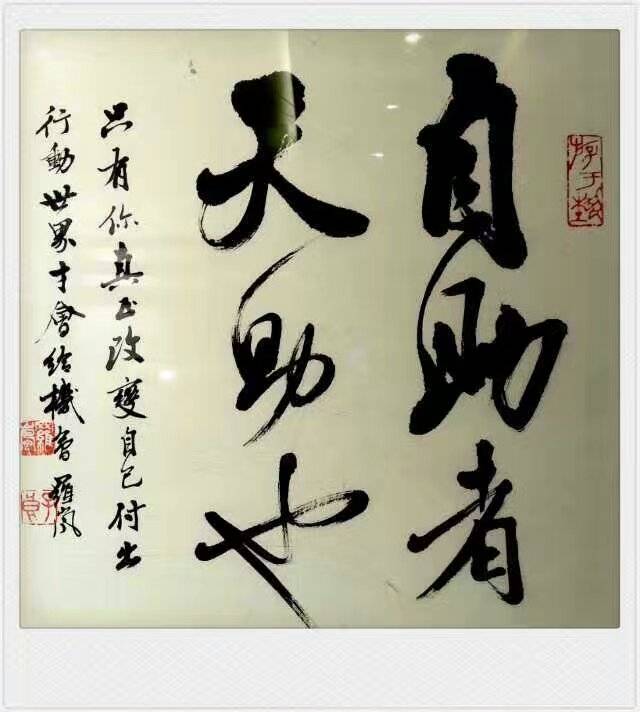 游于藝
自助者
天助也
只有你真正改變自己付出
行動世界才會给機會 羅